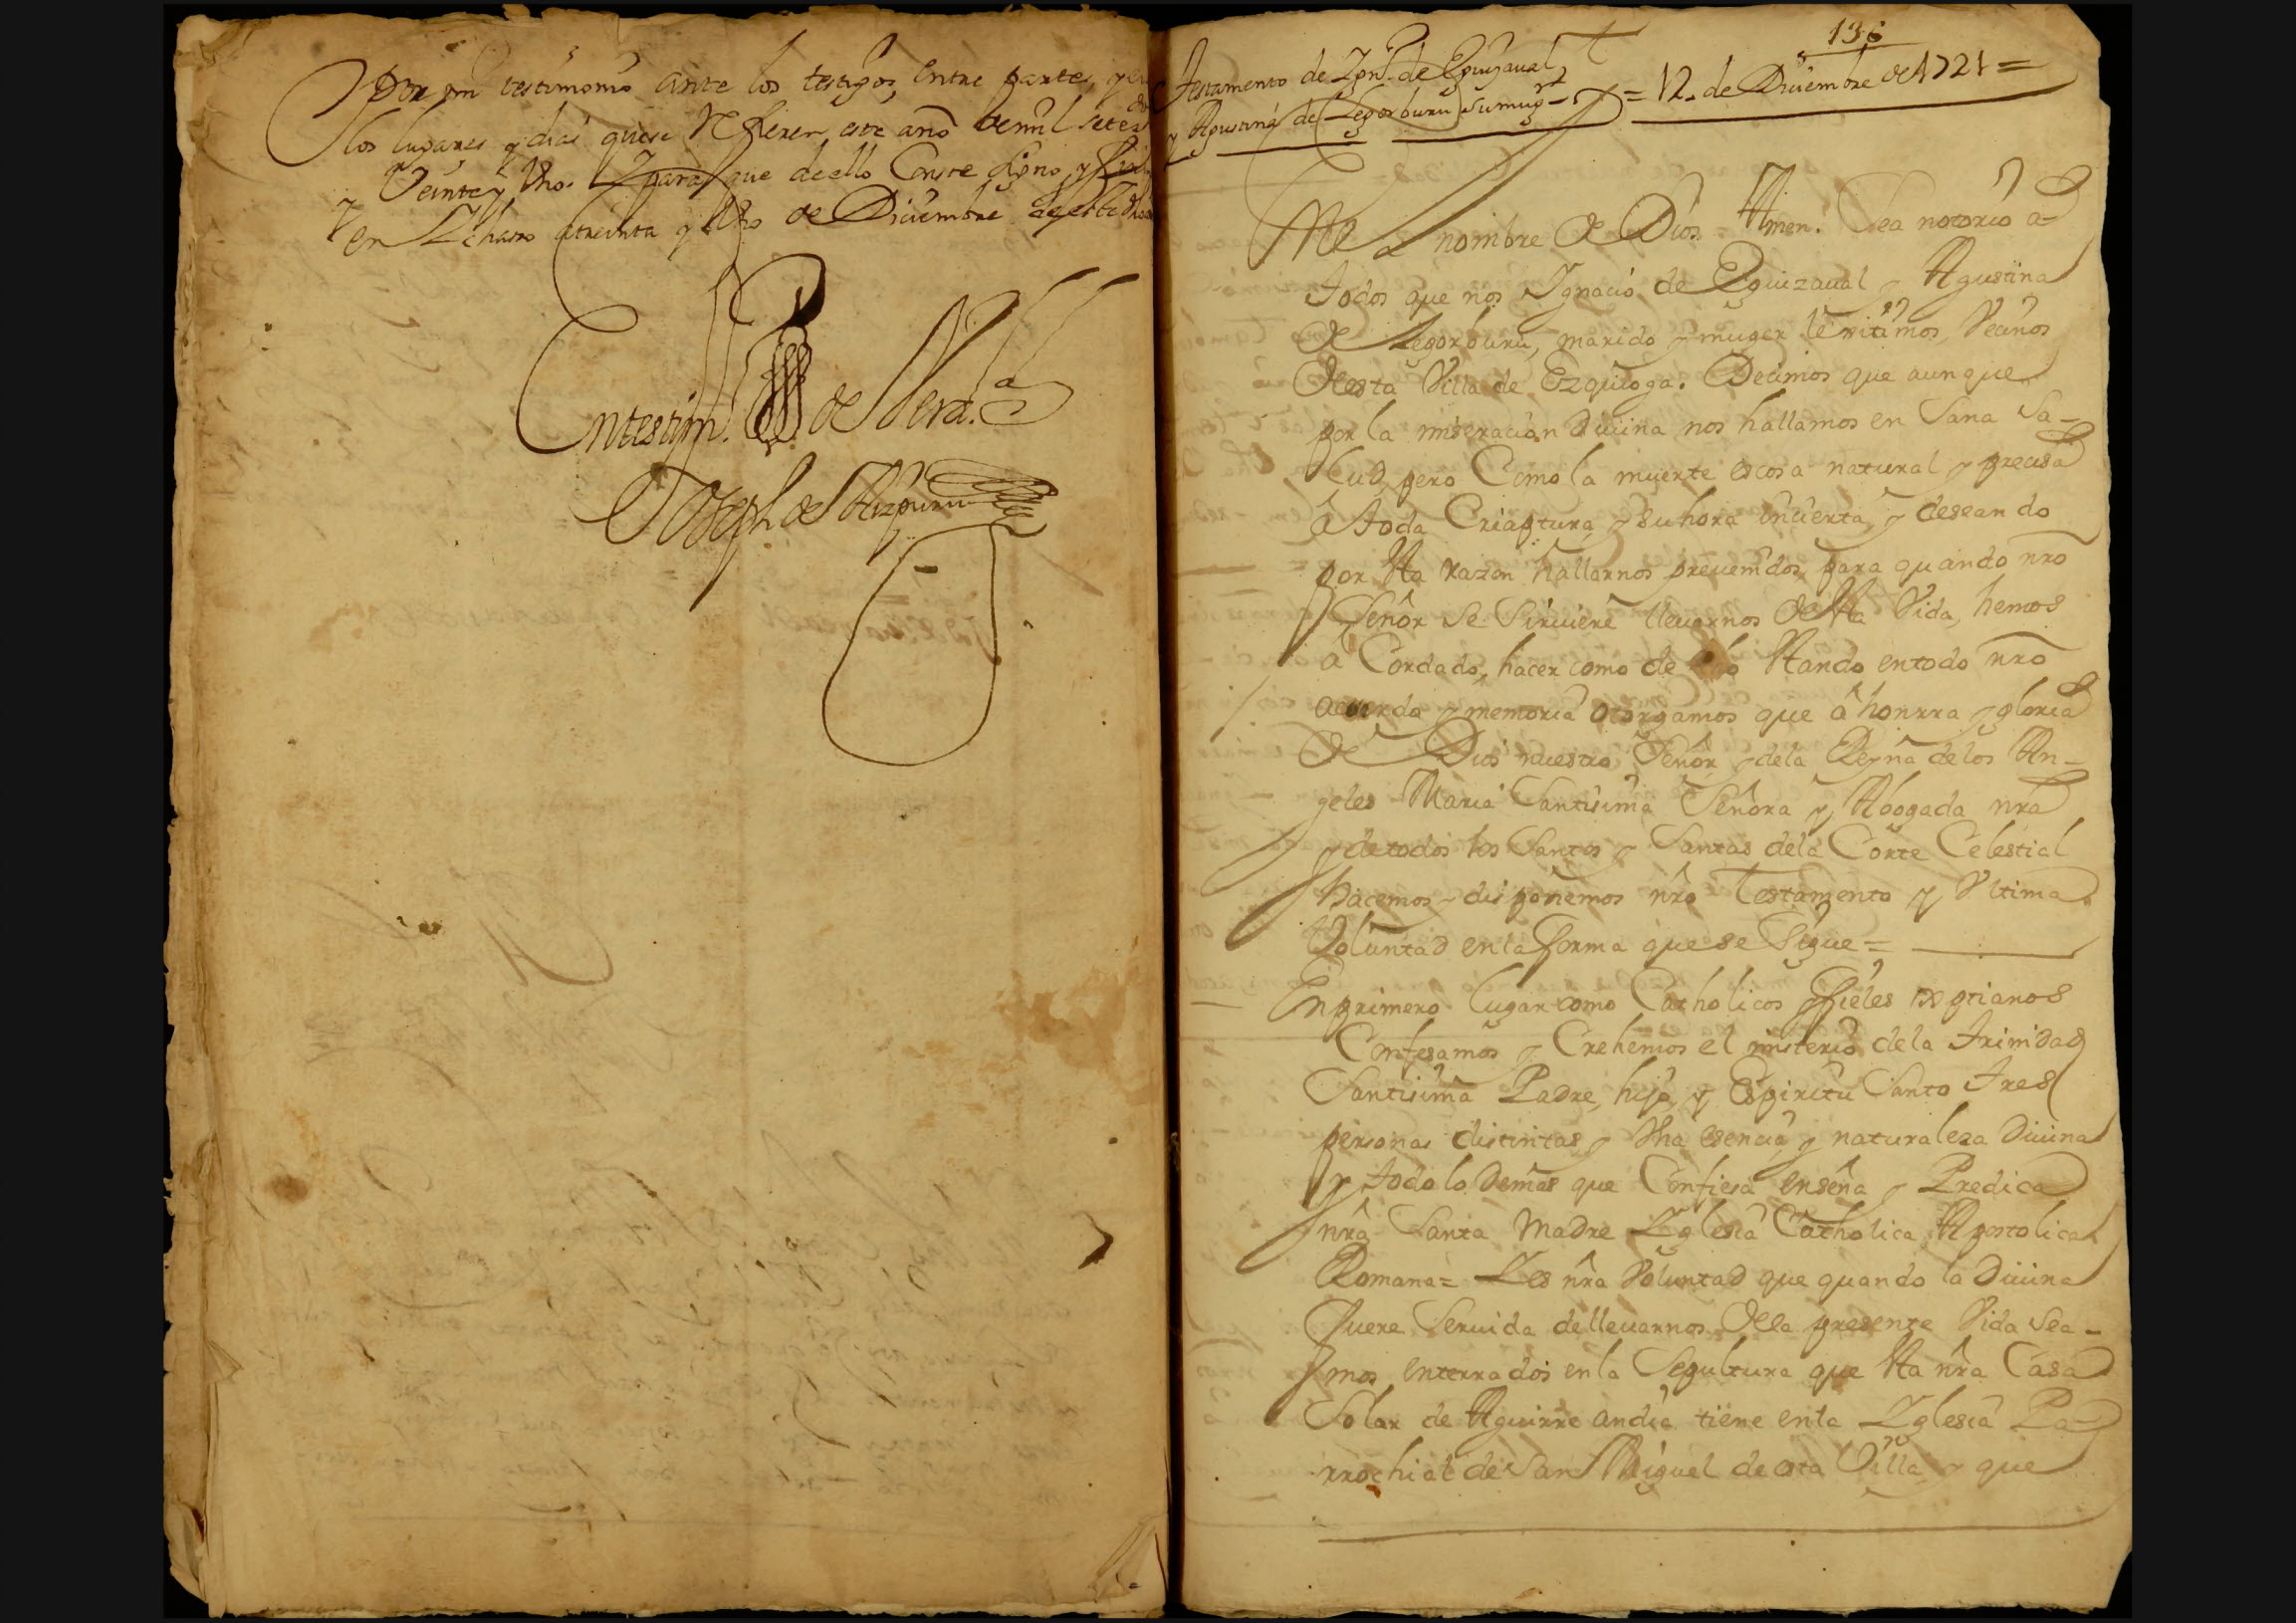 por mi testimonio ante los testigos, entre partes, y en
los lugares y dias que se refieren este año de mil setecs
Veinte y Uno. Y para que de ello Conste signo, y firmo
en Ychaso a treinta y Uno de Diciembre de este dho año
En testim.º de Verd.
Joseph de Aizpuru
136
Testamento de Ign.º de Eguizaval
y Agustina de Legorburu su mug.r = 12. de Diciembre de 1721 =
En el nombre de Dios Amen. Sea notorio a
todos que nos Ignacio de Eguizaual y Agustina
de Legorburu, marido y muger lexitimos, Vecinos
de esta Villa de Ezquioga. Decimos que aunque
por la miseracion diuina nos hallamos en Sana Sa-
lud, pero Como la muerte es cosa natural y precisa
â toda Criaptura y su hora incierta, y deseando
por Sta razon hallarnos preuenidos para quando nro
Señor se Siruiere lleuarnos de Sta Vida, hemos
a Cordado, hacer como de fho Stando en todo nro
acuerdo y memoria otorgamos que â honrra y gloria
de Dios nuestro Señor y de la Reyna de los An-
geles Maria Santisima Señora y Abogada nra
y de todos los Santos y Santas de la Corte Celestial
hacemos y disponemos nro Testamento y Vltima
Voluntad en la forma que se Sigue =
En primero lugar como Catholicos y fieles xptianos
Confesamos y Crehemos el misterio de la Trinidad
Santisima Padre, hijo, y Espiritu Santo Tres
personas distintas, y Vna esencia, y naturaleza diuina
y todo lo demas que Confiesa enseña y Predica
nra Santa Madre Yglesia Catholica, Apostolica
Romana = Y es nra Voluntad que quando la Diuina
fuere Seruida de lleuarnos de la presente Vida sea-
mos enterrados en la Sepultura que Sta nra Casa
Solar de Aguirre andia tiene en la Yglesia Pa-
rrochial de San Miguel de esta Villa, y que